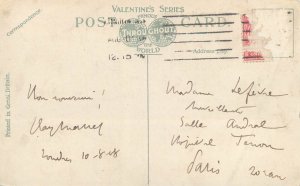 VALENTINE'S SERIES
POST CARD
FAMOUS
THROUGHOUT
THE
WORLD
Correspondence.
Address Only
12.15
Printed in Great Britain.
Bon souvenir !
Londres 10-8-08
Madame Lefèvre
Surveillante
Salle Andral
Hôpital Tenon
Paris